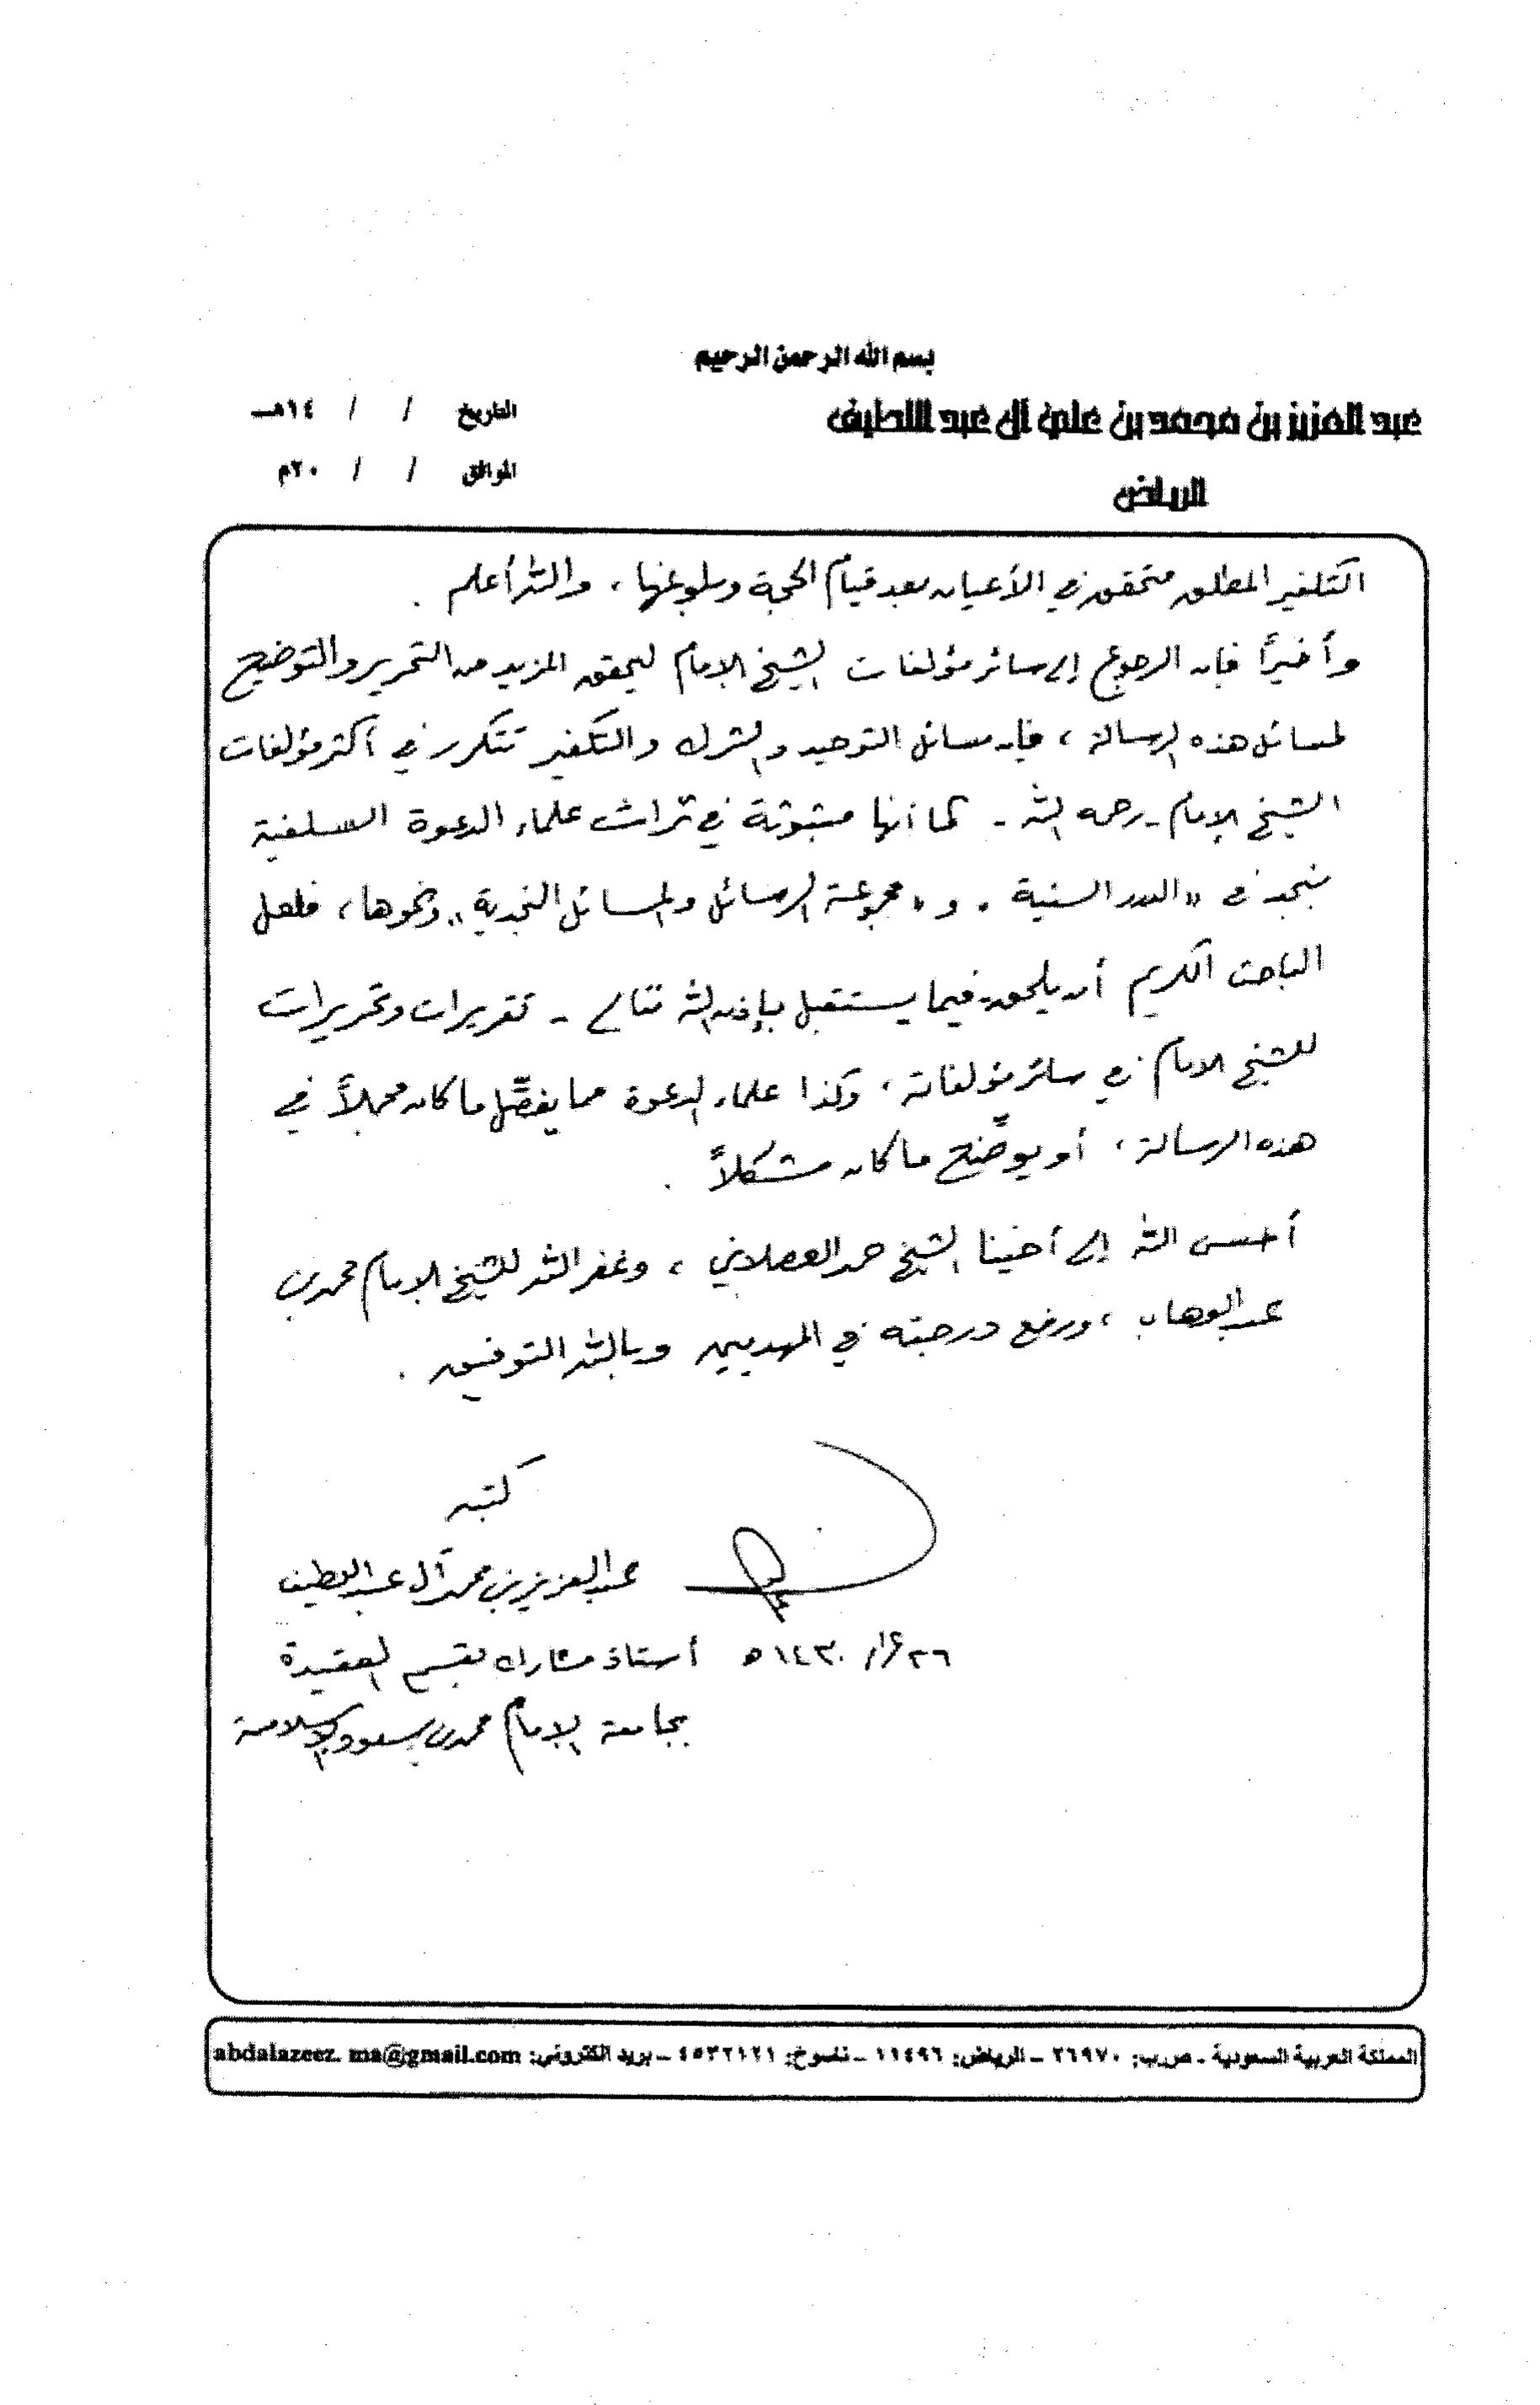 بسم الله الرحمن الرحيم
عبد العزيز بن محمد بن علي آل عبد اللطيف
الرياض
التاريخ / / ١٤هـ
الموافق / / ٢٠م
التكفير المطلق متحقق في الأعيان بعد قيام الحجة وبلوغها ، والله أعلم .
وأخيراً فإن الرجوع إلى سائر مؤلفات الشيخ الإمام ليحقق المزيد من التحرير والتوضيح
لمسائل هذه الرسالة ، فإن مسائل التوحيد والشرك والتكفير تتكرر في أكثر مؤلفات
الشيخ الإمام - رحمه الله - كما أنها مبثوثة في تراث علماء الدعوة السلفية
بنجد في "الدرر السنية" و "مجموعة الرسائل والمسائل النجدية" ونحوها ، فلعل
الباحث الكريم أن يلحق فيما يستقبل بإذن الله تعالى - تقريرات وتحريرات
للشيخ الإمام في سائر مؤلفاته ، وكذا علماء الدعوة مما يفصّل ما كان مجملاً في
هذه الرسالة ، أو يوضّح ما كان مشكلاً .
أحسن الله إلى أخينا الشيخ حمد العصلاني ، وغفر الله للشيخ الإمام محمد بن
عبد الوهاب ، ورفع درجته في المهديين وبالله التوفيق .
كتبه
عبد العزيز بن محمد آل عبد اللطيف
أستاذ مشارك بقسم العقيدة ١٤٣٠هـ
بجامعة الإمام محمد بن سعود الإسلامية
المملكة العربية السعودية - ص.ب: ٢٦٩٧٠ - الرياض: ١١٤٩٦ - ناسوخ: ٤٥٣٢١٢١ - بريد الكتروني: abdalazeez. ma@gmail.com